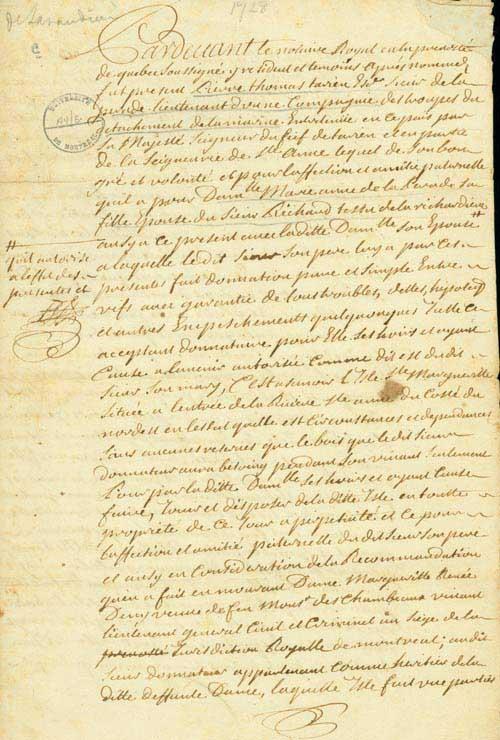 de Lanaudière
1728
Pardevant le notaire Royal en la prevosté
de quebec soussigné y residant et temoins apres nommez
fut present Pierre thomas tarieu Ecr. Sieur de la
perade lieutenant d'une Compagnie des troupes du
detachement de la marine Entretenüe en ce païs par
Sa Majesté Seigneur du fief de tarieu et en partie
de la Seigneurie de Ste. Anne lequel de son bon
gré et volonté et pour l'affection et amitié paternelle
qu'il a pour Damlle Marie anne de la Perade sa
fille Epouse du Sieur Richard testu de la richardiere
aussy a ce present avec laditte Damlle son Epouse #
a laquelle ledit Sieur son pere luy a par ces
presentes fait donnation pure et simple Entre
vifs avec garantie de tous troubles, dettes, hypoteq
et autres Empeschements quelquonques Elle ce
acceptant donnataire pour Elle ses hoirs et ayant
Cause a l'avenir autorisée Comme dit est dudit
Sieur son mary, C'est a savoir l'Isle Ste Margueritte
située a l'entrée de la Riviere Ste anne du Costé du
nordest en l'estat quelle est Circonstances et dependances
sans aucunes reserves que le bois que le dit Sieur
donnateur aura besoing pendant son vivant seulement
Pour par laditte Damlle ses hoirs et ayant Cause
faire, Jouir et disposer de la ditte Isle en toutte
propriété de ce Jour a perpetuité et ce pour
l'affection et amitié paternelle du dit Sieur son pere
et aussy en Consideration de la Recommandation
qu'en a fait en mourant Dame Margueritte Renée
Denys veuve de feu Monsr. des Chambeaux vivant
lieutenant general Civil et Criminel au siege de la
Jurisdiction Royalle de montreal; audit
Sieur donnateur appartenant comme heritier de la
ditte deffunte Dame, laquelle Isle fait vne partie
#
qu'il autorise
a l'effet des
presentes et